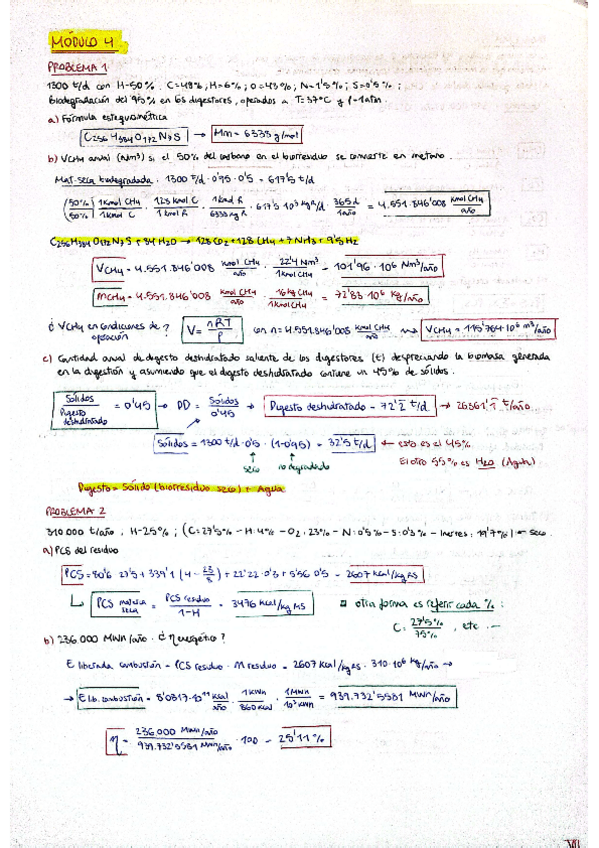 MÓDULO 4
PROBLEMA 1
1300 t/d con H=50%. C=48%, H=6%; O=43%; N=1'5%; S=0'5%;
Biodegradación del 95% en los digestores, operados a T=37ºC y P=1atm.
a) Fórmula estequiométrica
C256 H384 O172 N7 S → Mm = 6333 g/mol
b) VCH4 anual (Nm³) si el 50% del carbono en el biorresiduo se convierte en metano.
Mat. seca biodegradada = 1300 t/d · 0'95 · 0'5 = 617'5 t/d
= 4.551.846'008 kmol CH4/año
C256 H384 O172 N7 S + 84 H2O → 128 CO2 + 128 CH4 + 7 NH3 + H2S
VCH4 = 4.551.846'008 kmol CH4/año · 22'4 Nm³/1 kmol CH4 = 101'96 · 10⁶ Nm³/año
mCH4 = 4.551.846'008 kmol CH4/año · 16 kg CH4/1 kmol CH4 = 72'83 · 10⁶ kg/año
¿ VCH4 en condiciones de operación ? V = nRT/P con n = 4.551.846'008 kmol CH4/año → VCH4 = 115'764·10⁶ m³/año
c) Cantidad anual de digesto deshidratado saliente de los digestores (t) despreciando la biomasa generada
en la digestión y asumiendo que el digesto deshidratado contiene un 45% de sólidos.
Sólidos/Digesto deshidratado = 0'45 → DD = Sólidos/0'45 → Digesto deshidratado = 72'2 t/d → 26361'1 t/año
Sólidos = 1300 t/d · 0'5 · (1-0'95) = 32'5 t/d ← esto es el 45%
seco no degradado El otro 55% es H2O (Agua)
Digesto = Sólido (biorresiduo seco) + Agua
PROBLEMA 2
310.000 t/año, H=25%; (C=27'5% - H=4% - O2=23% - N=0'5% - S=0'3% - Inertes=19'7%) ← seco
a) PCS del residuo
= 2607 Kcal/kg RS
PCS materia seca = PCS residuo/1-H = 3476 Kcal/kg MS
otra forma es referir cada %:
C = 27'5%/75%, etc.
b) 236.000 MWh/año. ¿ η energético ?
E liberada combustión = PCS residuo · M residuo = 2607 Kcal/kg RS · 310·10⁶ kg/año →
→ E lib. combustión = 8'0817·10¹¹ kcal/año · 1 KWh/860 kcal · 1 MWh/10³ KWh = 939.732'5581 MWh/año
η = 236.000 MWh/año / 939.732'5581 MWh/año · 100 = 25'11%